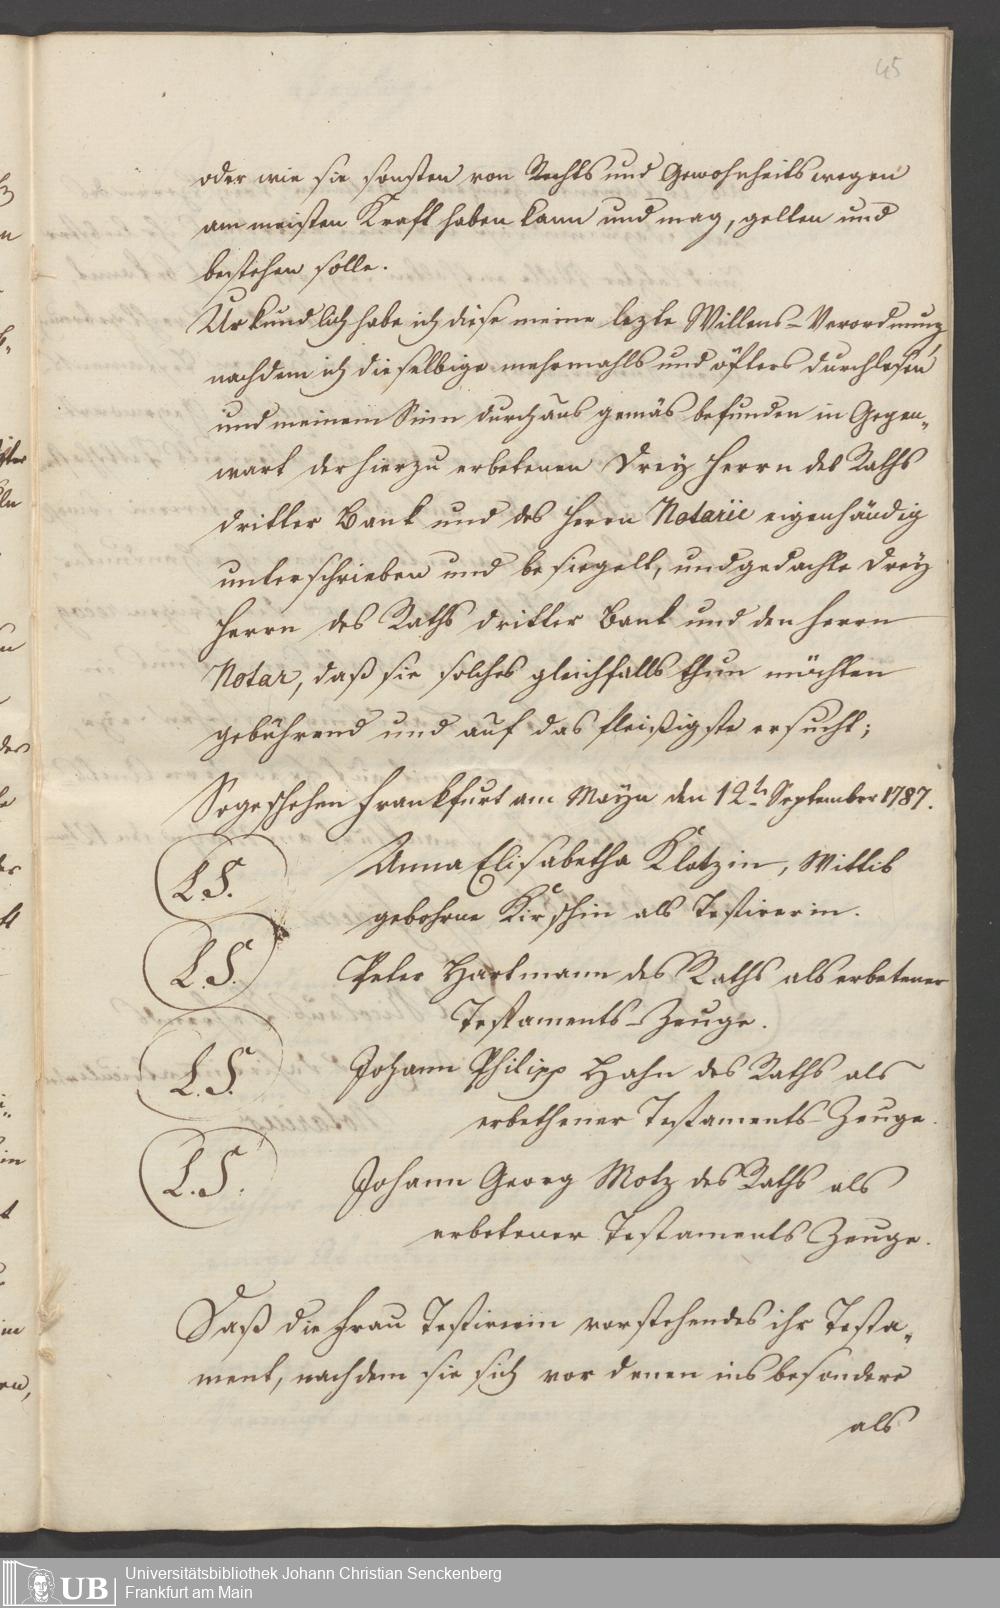 45
oder wie sie sonsten von Rechts und Gewohnheits wegen
am meisten Kraft haben kann und mag, gelten und
bestehen solle.
Urkundlich habe ich diese meine lezte Willens-Verordnung
nachdem ich dieselbige mehrmahls und öfters durchlesen
und meinem Sinn durchaus gemäs befunden in Gegen„
wart der hierzu erbetenen Drey Herrn des Raths
dritter Bank und des Herrn Notarii eigenhändig
unterschrieben und besiegelt, und gedachte drey
Herrn des Raths dritter Bank und den Herrn
Notar, daß sie solches gleichfalls thun möchten
gebührend und auf das fleißigste ersucht;
So geschehen Frankfurt am Mayn den 12ten September 1787.
L.S. Anna Elisabetha Klotzin, Wittib
gebohrne Kirschin als Testirerin.
L.S. Peter Hartmann des Raths als erbetener
Testaments-Zeuge.
L.S. Johann Philipp Hahn des Raths als
erbethener Testaments-Zeuge.
L.S. Johann Georg Motz des Raths als
erbetener Testaments Zeuge.
Daß die Frau Testirerin vorstehendes ihr Testa„
ment, nachdem sie sich vor denen ins besondere
als
UB Universitätsbibliothek Johann Christian Senckenberg
Frankfurt am Main